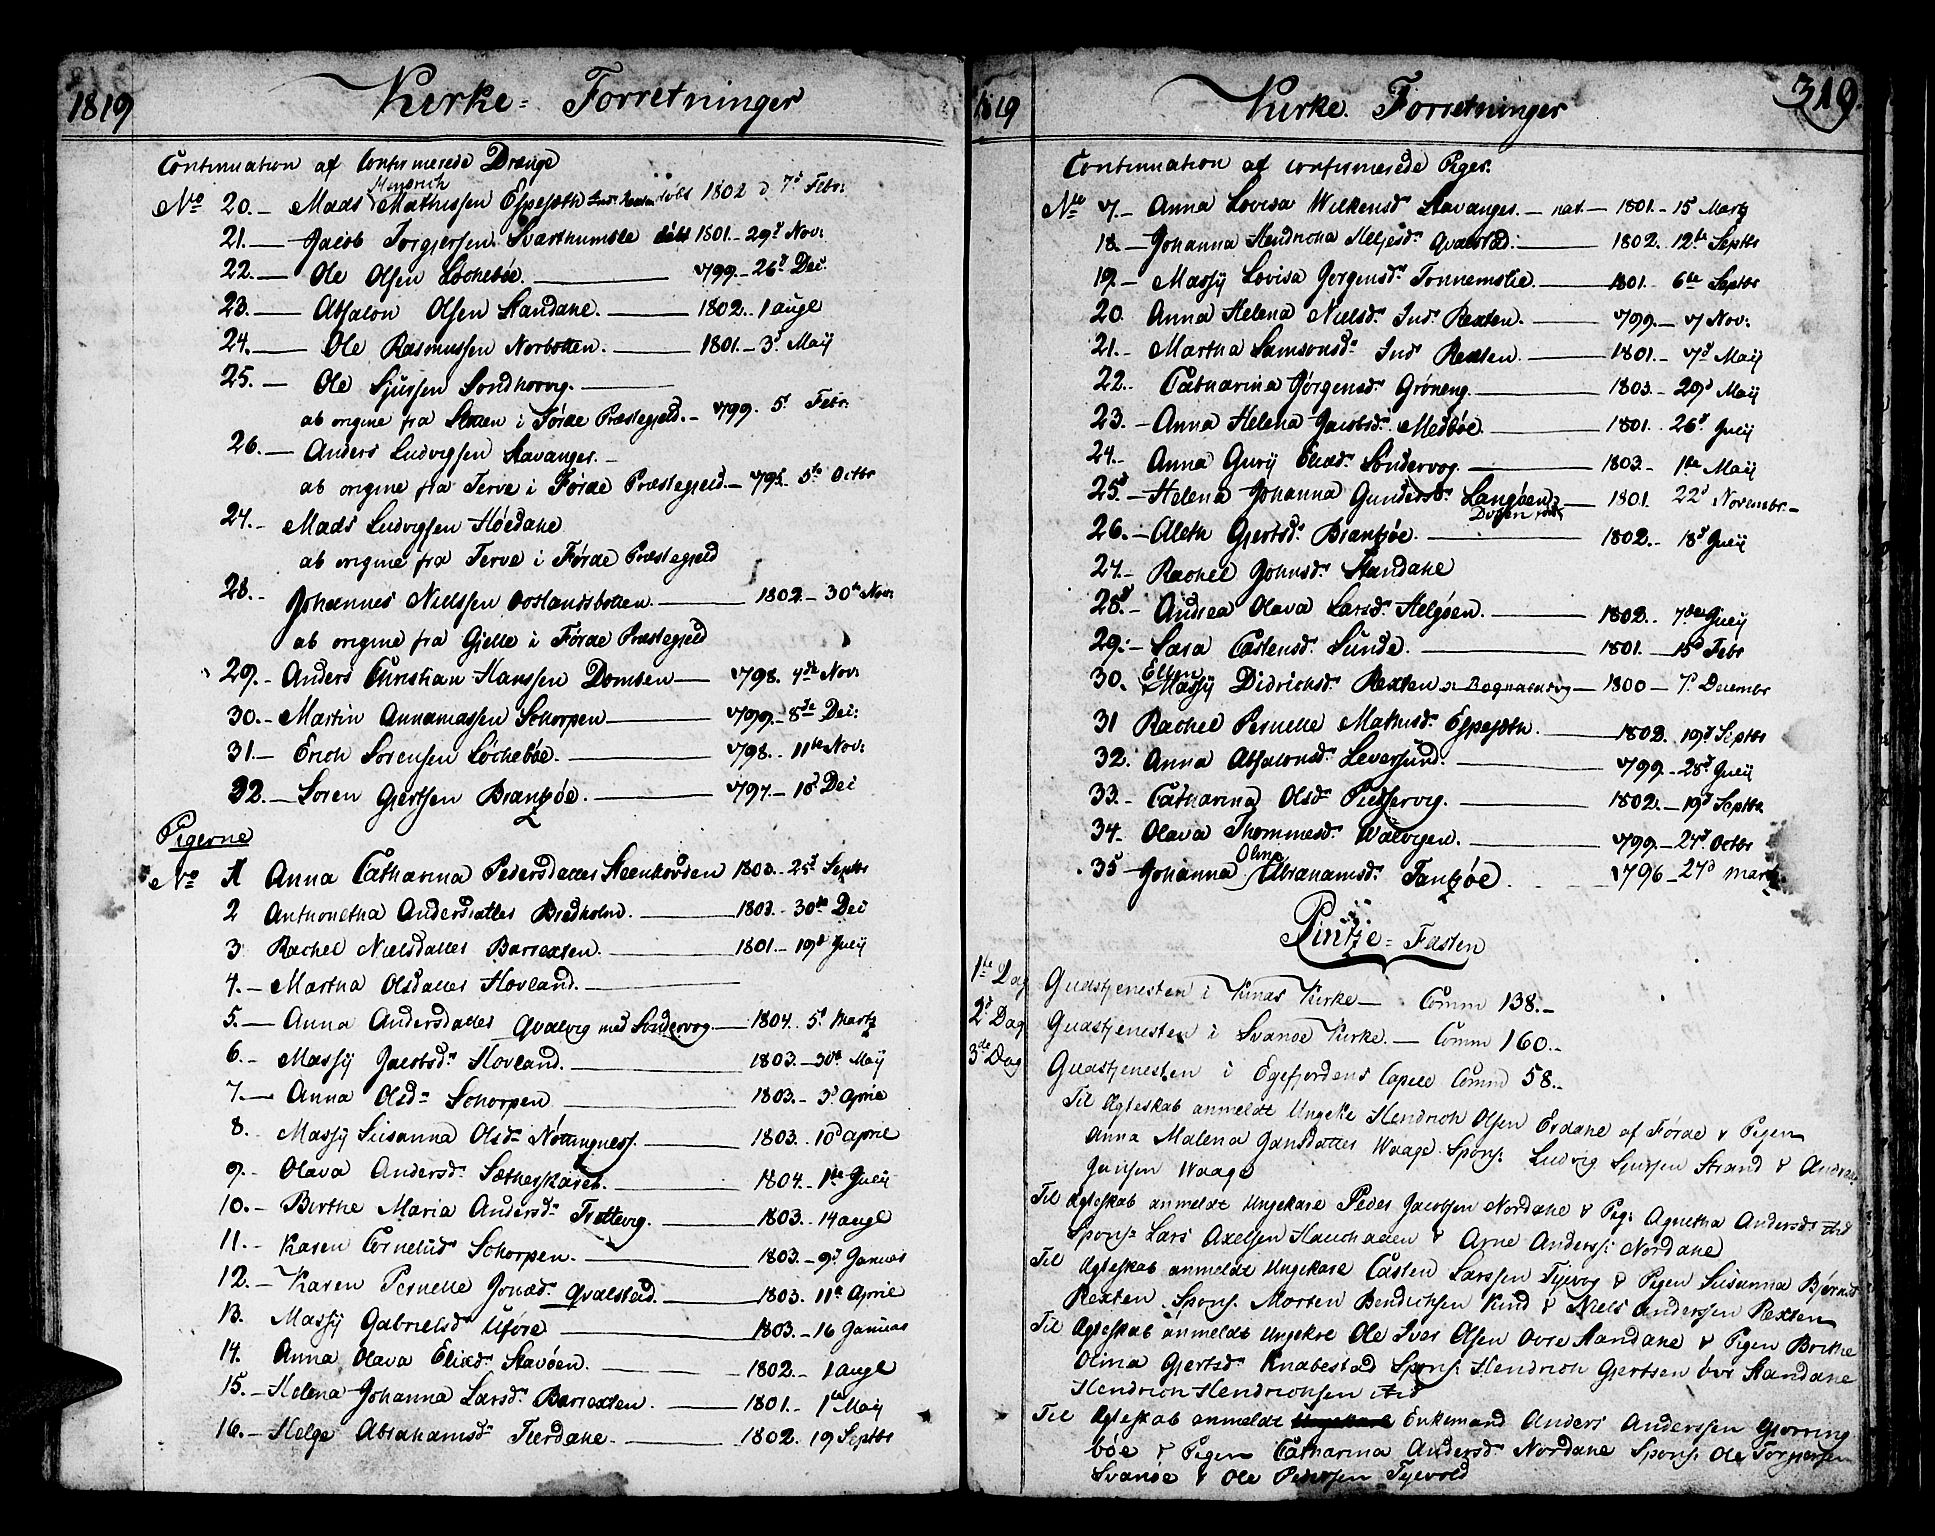 1819 Kirke = Forretninger
Continuation af Confirmerede Drenge
No 20. - Mads Hendrich Mathissen Espesæth 1802 d 7d Febr:
21. - Jacob Torgjersen Svarthumble 1801 - 29d Nov:
22. - Ole Olsen Lochebøe. 799. - 26d Dec:
23. - Absalon Olsen Standahe. 1802. 1 augl
24. - Ole Rasmussen Norbotten. 1801. - 3d Maij
25. - Ole Sjurssen Sondhorvg.
ab origine fra Skotten i Førde Præstegjeld. - 799. 5d Febr:
26. - Anders Ludvigsen Stavanges. -
ab origine fra Terve i Førde Præstegjeld. - 795. 5te Octbr
27. - Mads Ludvigsen Høedahe
ab origine fra Terve i Førde Præstegjeld
28. - Johannes Nielssen Ooslandsbotten. 1802 - 30te Nov:
ab origine fra Gjelle i Førde Præstegjeld
29. - Anders Christian Hanssen Domsen 798. 4de Nov:
30. - Martin Annanassen Schorpen 799 - 8de Dec:
31. - Erich Sørensen Lochebøe. 798. - 11te Nov:
32. - Søren Gjertsen Brandzøe. 797. - 10d Dec
Pigerne
No 1 Anna Catharina Pedersdatter Steenhovden 1803 - 25d Septbr
2 Anthonetha Andersdatter Bredholm. 1803. - 30te Dec
3 Rachel Nielsdatter Barrexten. 1801 - 19d Julij
4. - Martha Olsdatter Hovland.
5. - Anna Andersdatter Qvalvig med Sondervog 1804. 5d Martz
6. - Massij Jacobsdr Hovland. 1803. - 30d Maij
7. - Anna Olsdr Schorpen 1803. - 3d Aprile
8. Massij Susanna Olsdr Nøttingness. 1803. 10d aprile
9. - Olava Andersdr Sætherskaret. 1804. - 1te Julij
10. - Birthe Maria Andersdr Trettevig. 1803. - 14 augl
11. - Karen Cornelidr Schorpen. 1803. - 9d Januar
12. - Karen Pernelle Jonædr Qvalstad. 1803. 11te Aprile
13. Massij Gabrielsdr Uføre 1803. - 16 Januar
14. Anna Olava Eliædr Stavøen. 1802. - 1 augl
15. - Helena Johanna Larsdr Barrexten. 1801. - 1te Maij
16. - Helge Abrahamsdr Tierdahe. 1802. 19 Septbr
1819 Kirke. Forretninger 319.
Continuation af confirmerede Piger.
No 17. - Anna Lovisa Wilkensdr Stavanges. - nat. - 1801. - 15 Martz
18. - Johanna Hendricha Meljesdr Qvalstad. 1802. 12te Septbr
19. - Massij Lovisa Jørgensdr Tonnemslie. 1801. 6te Septbr
20. Anna Helena Nielsdr Indr Rexten. 799. - 7 Nov:
21. - Martha Samsonsdr Indr Rexten. 1801. - 7d Maij
22. - Catharina Jørgensdr Grøneng. 1803. - 29d Maij
23. - Anna Helena Jacobsdr Medbøe. 1801. 26d Julij
24. - Anna Gurij Eliædr Sondervog. 1803. - 1te Maij
25. - Helena Johanna Gundersdr Langøen 1801. 22d Novembr -
26. - Aleth Gjertsdr Brandzøe. 1802. - 18d Julij
27. - Rachel Johnsdr Standahe
28. - Andrea Olava Larsdr Helgøen. 1802. 7de Julij
29. - Sara Castensdr Sunde. 1801. - 15d Febr
30. Ellen Massij Didrichsdr Rexten 1800 - 7d Decembr
31 Rachel Pernelle Mathisdr Espesæth. 1802. 19d Septbr
32. Anna Absalonsdr Leversund. 799. - 28d Julij
33. - Catharina Olsdr Pidservig. 1802. - 19d Septbr
34. Olava Thommesdr Walvigen. 799. - 27d Octbr
35 - Johanna Olina Abrahamsdr Tandzøe. 1796 - 27d Martz
Pintze = Festen
1te Dag Gudstjenesten i Kinds Kirke - Comm 138. -
2d Dag Gudstjenesten i Svanøe Kirke. - Comm 160. -
3de Dag Gudstjenesten i Egefjordens Capell Comm 58. -
Til Ægteskab anmeldt Ungeke Hendrich Olsen Erdahe af Førde & Pigen
Anna Malena Jansdatter Waage Spons: Ludvig Sjurssen Strand & Andreas
Jansen Waage
Til Ægteskab anmeldt Ungekare Peder Jacobsen Nordahe & Pig: Agnetha Andersdr ibid
Spons: Lars Axelsen Hauchaaen & Arne Anderss: Nordahe
Til Ægteskab anmeldt Ungekare Casten Larssen Tyevog & Pigen Susanna Bjørnsdr
Rexten. Spons. Morten Bendichsen Kind & Niels Anderssen Rexten
Til Ægteskab anmeldt Ungekre Ole Iver Olsen Øvre Standahe & Pigen Birthe
Olina Gjertsdr Knabestad Spons: Hendrich Gjertsen øvr Standahe
Hendrich Hendrichsen ibid
Til Ægteskab anmeldt Enkemand Anders Anderssen Gjorring
bøe & Pigen Catharina Andersdr Nordahe Spons: Ole Torgjersen
Svanøe & Ole Pedersen Tyevold